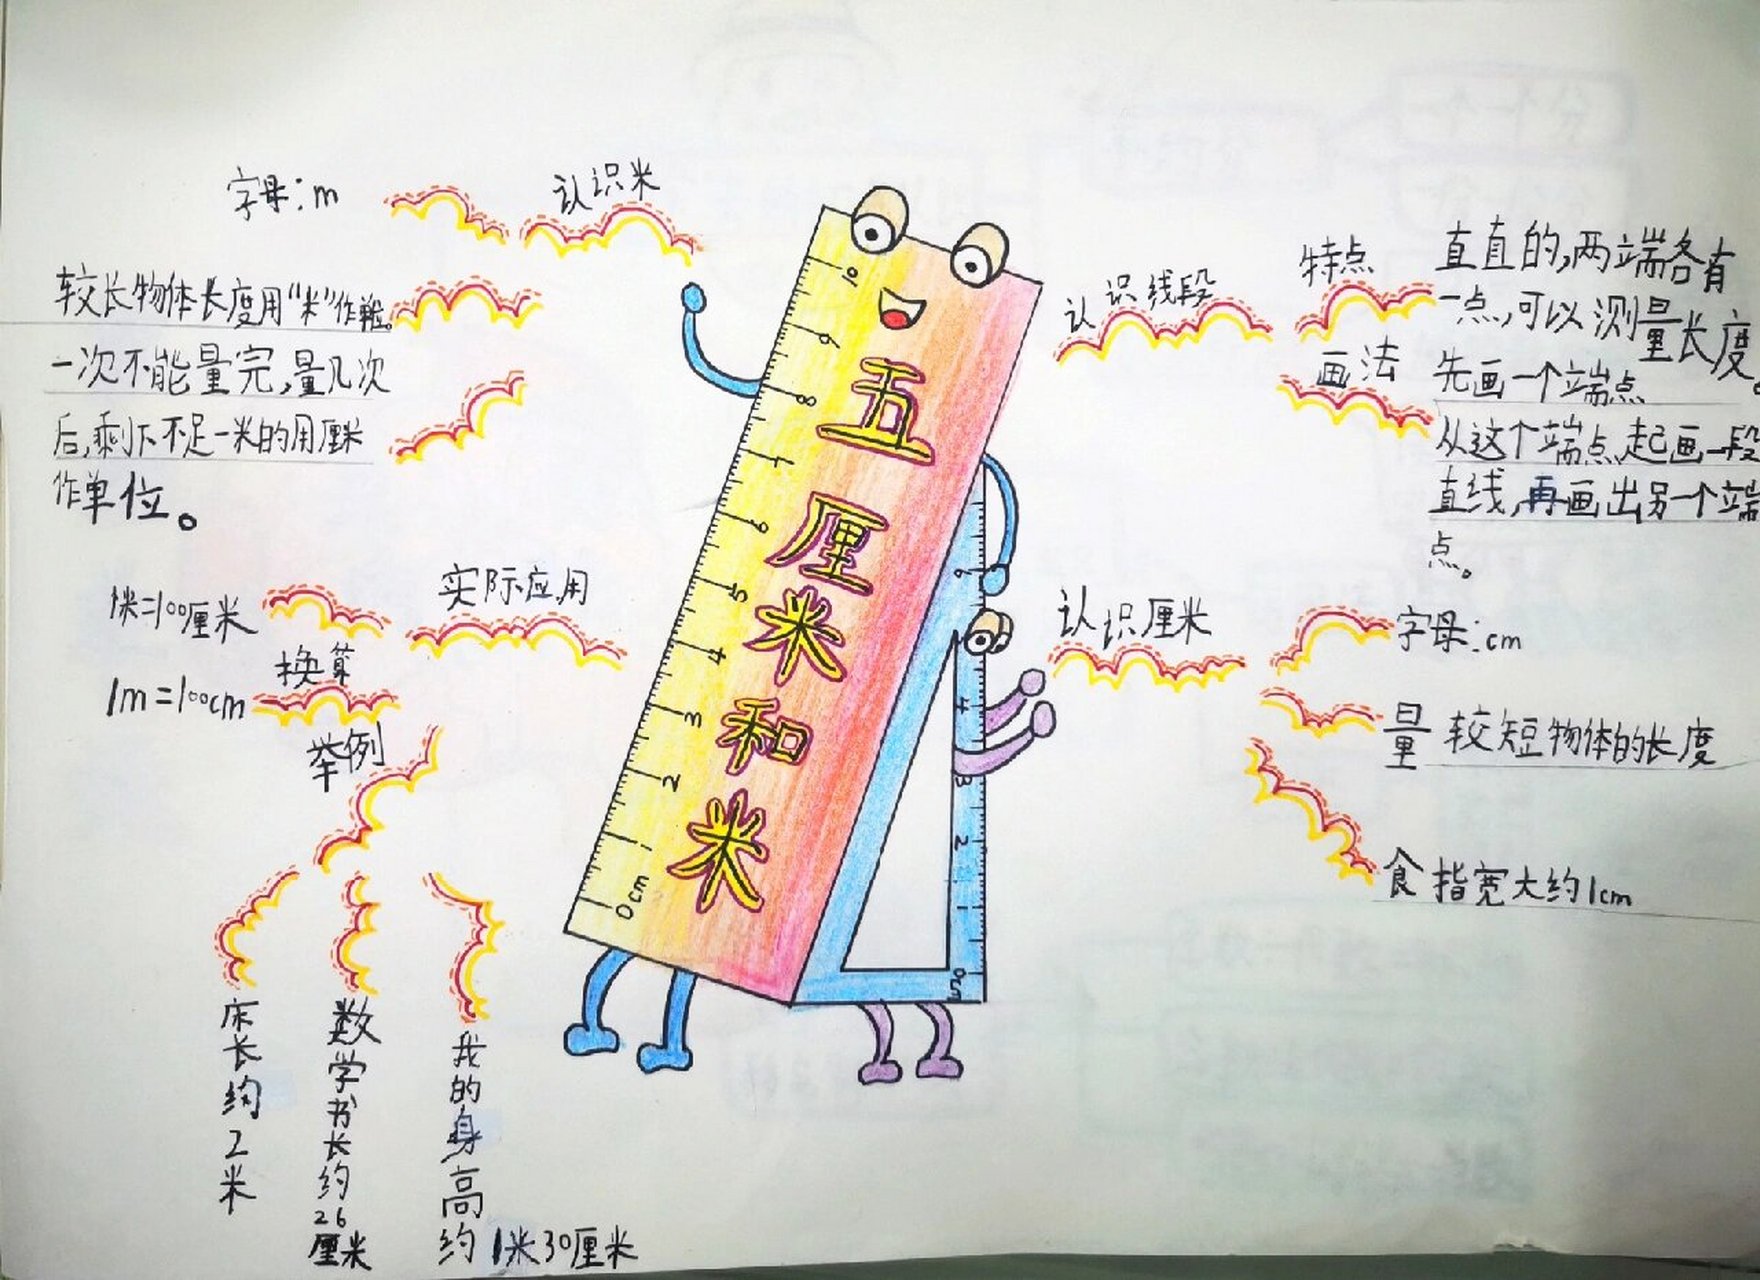 五厘米和米
认识米
字母:m
较长物体长度用“米”作单位。
一次不能量完,量几次
后,剩下不足一米的用厘米
作单位。
实际应用
换算
1米=100厘米
1m=100cm
举例
床长约2米
数学书长约26厘米
我的身高约1米30厘米
认识线段
特点
直直的,两端各有
一点,可以测量长度。
画法
先画一个端点
从这个端点起画一段
直线,再画出另一个端
点。
认识厘米
字母:cm
量较短物体的长度
食指宽大约1cm
10
9
8
7
6
5
4
3
2
1
0cm
6
4
3
2
1
0